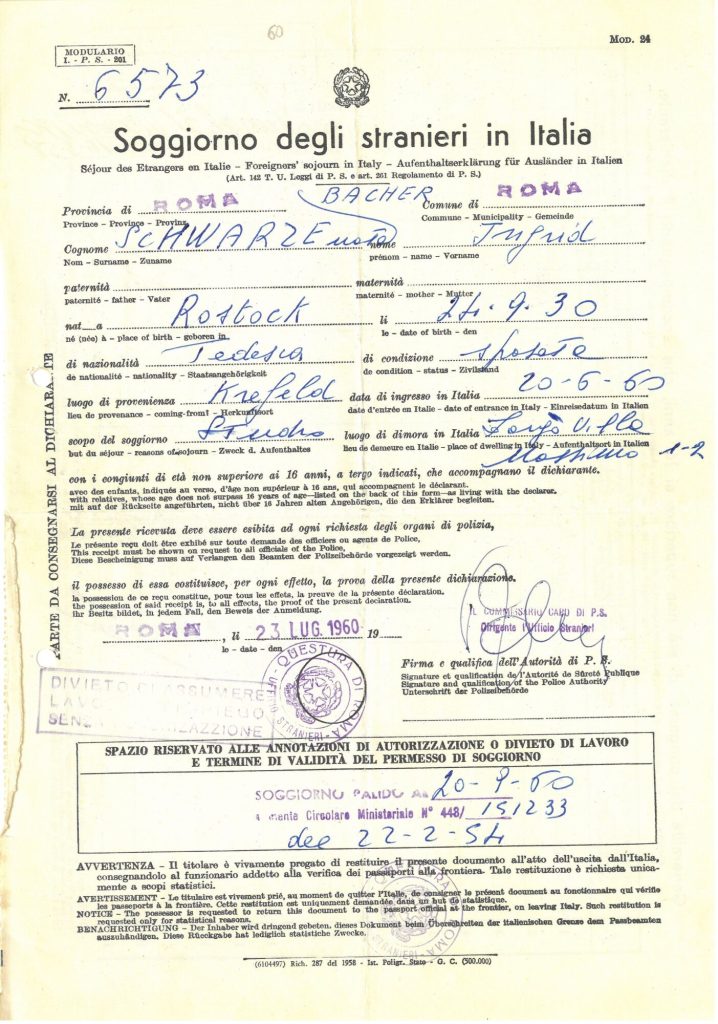 60
MOD. 24
MODULARIO
I. - P. S. - 201
N. 6573
Soggiorno degli stranieri in Italia
Séjour des Etrangers en Italie - Foreigners' sojourn in Italy - Aufenthaltserklärung für Ausländer in Italien
(Art. 142 T. U. Leggi di P. S. e art. 261 Regolamento di P. S.)
Provincia di ROMA BACHER Comune di ROMA
Province - Province - Provinz Commune - Municipality - Gemeinde
Cognome SCHWARZE nata nome Ingrid
Nom - Surname - Zuname prénom - name - Vorname
paternità maternità
paternité - father - Vater maternité - mother - Mutter
nat a Rostock li 24.9.30
né (née) à - place of birth - geboren in le - date of birth - den
di nazionalità Tedesca di condizione sposata
de nationalité - nationality - Staatsangehörigkeit de condition - status - Zivilstand
luogo di provenienza Krefeld data di ingresso in Italia 20-6-60
lieu de provenance - coming-from? - Herkunftsort date d'entrée en Italie - date of entrance in Italy - Einreisedatum in Italien
scopo del soggiorno Studio luogo di dimora in Italia Largo Villa
but du séjour - reasons of sojourn - Zweck d. Aufenthaltes lieu de demeure en Italie - place of dwelling in Italy - Aufenthaltsort in Italien
Massimo 1-2
con i congiunti di età non superiore ai 16 anni, a tergo indicati, che accompagnano il dichiarante.
avec des enfants, indiqués au verso, d'âge non supérieur à 16 ans, qui accompagnent le déclarant.
with relatives, whose age does not surpass 16 years of age—listed on the back of this form—as living with the declarer.
mit auf der Rückseite angeführten, nicht über 16 Jahren alten Angehörigen, die den Erklärer begleiten.
La presente ricevuta deve essere esibita ad ogni richiesta degli organi di polizia,
Le présente reçu doit être exhibé sur toute demande des officiers ou agents de Police.
This receipt must be shown on request to all officials of the Police.
Diese Bescheinigung muss auf Verlangen den Beamten der Polizeibehörde vorgezeigt werden.
il possesso di essa costituisce, per ogni effetto, la prova della presente dichiarazione.
la possession de ce reçu constitue, pour tous les effets, la preuve de la présente déclaration.
the possession of said receipt is, to all effects, the proof of the present declaration.
Ihr Besitz bildet, in jedem Fall, den Beweis der Anmeldung.
PARTE DA CONSEGNARSI AL DICHIARANTE
IL COMMISSARIO CAPO DI P.S.
Dirigente l'Ufficio Stranieri
ROMA, li 23 LUG. 1960 19
le - date - den
Firma e qualifica dell'Autorità di P. S.
Signature et qualification de l'Autorité de Sûreté Publique
Signature and qualification of the Police Authority
Unterschrift der Polizeibehörde
QUESTURA DI ROMA
UFFICIO STRANIERI
DIVIETO D'ASSUMERE
LAVORO
SENZA
SPAZIO RISERVATO ALLE ANNOTAZIONI DI AUTORIZZAZIONE O DIVIETO DI LAVORO
E TERMINE DI VALIDITÀ DEL PERMESSO DI SOGGIORNO
SOGGIORNO VALIDO AL 20-9-60
mente Circolare Ministeriale N° 448/ 151233
del 22-2-54
AVVERTENZA - Il titolare è vivamente pregato di restituire il presente documento all'atto dell'uscita dall'Italia,
consegnandolo al funzionario addetto alla verifica dei passaporti alla frontiera. Tale restituzione è richiesta unica-
mente a scopi statistici.
AVERTISSEMENT - Le titulaire est vivement prié, au moment de quitter l'Italie, de consigner le présent document au fonctionnaire qui vérifie
les passeports à la frontière. Cette restitution est uniquement demandée dans un but de statistique.
NOTICE - The possessor is requested to return this document to the passport official at the frontier, on leaving Italy. Such restitution is
requested only for statistical reasons.
BENACHRICHTIGUNG - Der Inhaber wird dringend gebeten, dieses Dokument beim Überschreiten der italienischen Grenze dem Passbeamten
auszuhändigen. Diese Rückgabe hat lediglich statistische Zwecke.
(6104497) Rich. 287 del 1958 - Ist. Poligr. Stato - G. C. (500.000)